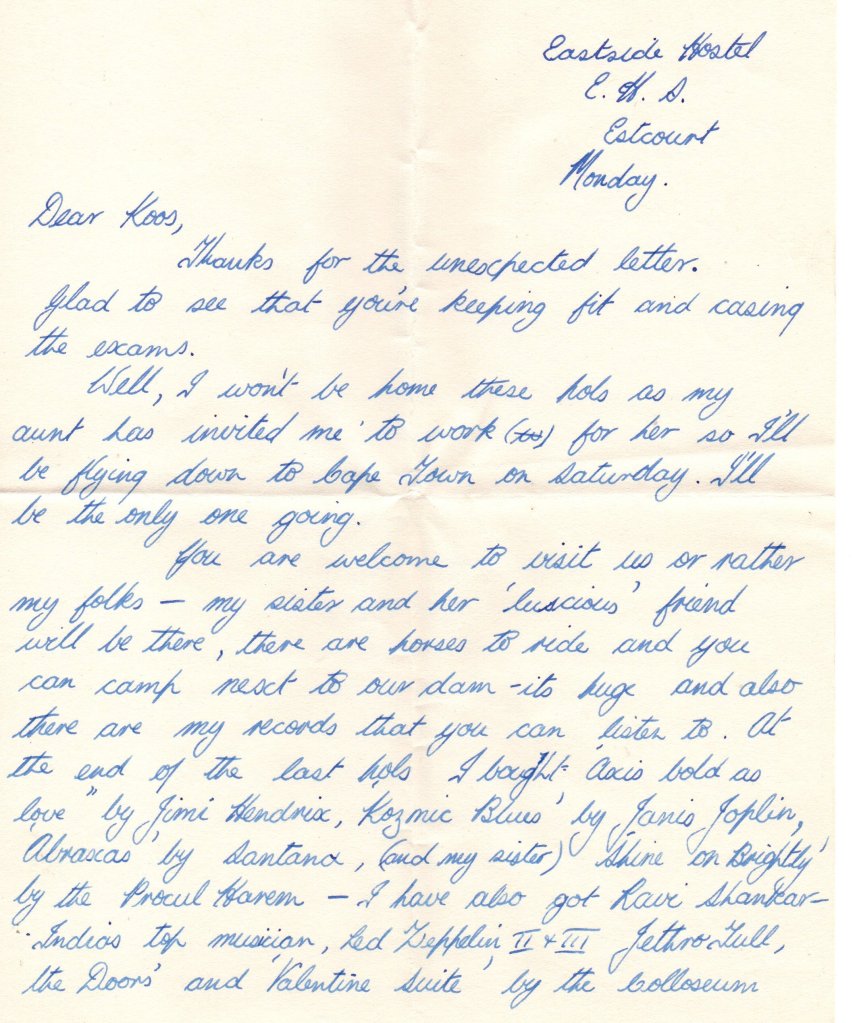 Eastside Hostel
E. H. S.
Estcourt
Monday.
Dear Koos,
Thanks for the unexpected letter.
Glad to see that you're keeping fit and casing
the exams.
Well, I won't be home these hols as my
aunt has invited me to work () for her so I'll
be flying down to Cape Town on Saturday. I'll
be the only one going.
You are welcome to visit us or rather
my folks – my sister and her 'luscious' friend
will be there, there are horses to ride and you
can camp next to our dam – its huge and also
there are my records that you can listen to. At
the end of the last hols I bought "Axis bold as
love" by Jimi Hendrix, 'Kozmic Blues' by Janis Joplin,
'Abraxas' by Santana, (and my sister) 'Shine on Brightly'
by the Procul Harem – I have also got Ravi Shankar –
Indias top musician, Led Zeppelin II & III Jethro Tull,
the Doors' and 'Valentine Suite' by the Colloseum